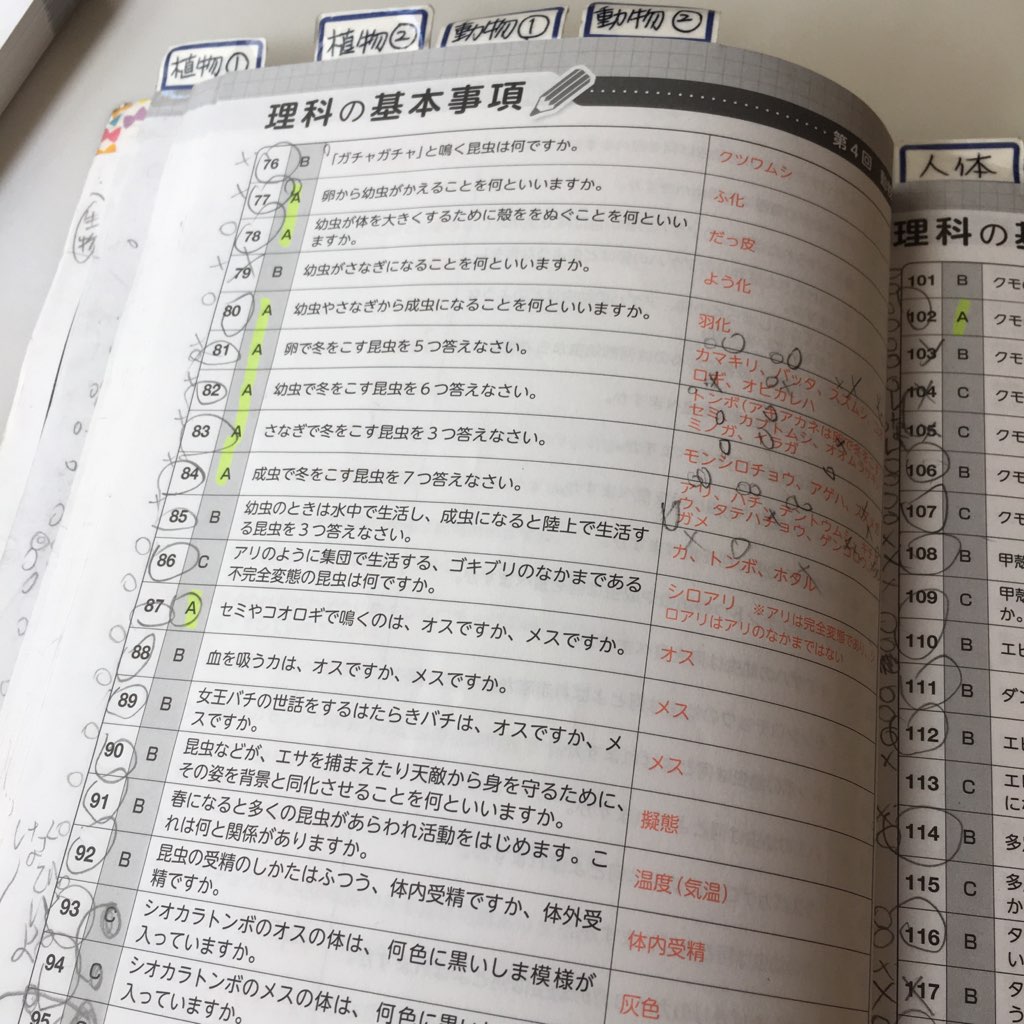 植物①
植物②
動物①
動物②
人体
生物
理科の基本事項
第4回
76 B 「ガチャガチャ」と鳴く昆虫は何ですか。 クツワムシ
77 A 卵から幼虫がかえることを何といいますか。 ふ化
78 A 幼虫が体を大きくするために殻ををぬぐことを何といい
ますか。 だっ皮
79 B 幼虫がさなぎになることを何といいますか。 よう化
80 A 幼虫やさなぎから成虫になることを何といいますか。 羽化
81 A 卵で冬をこす昆虫を5つ答えなさい。 カマキリ、バッタ、スズムシ、
オビカレハ
82 A 幼虫で冬をこす昆虫を6つ答えなさい。 トンボ
セミ、カブトムシ、
ミノガ、イラガ
83 A さなぎで冬をこす昆虫を3つ答えなさい。 モンシロチョウ、アゲハ、
84 A 成虫で冬をこす昆虫を7つ答えなさい。 アリ、ハチ、テントウム
ウ、タテハチョウ、ゲンゴロウ、
ガメ
85 B 幼虫のときは水中で生活し、成虫になると陸上で生活す
る昆虫を3つ答えなさい。 カ、トンボ、ホタル
86 C アリのように集団で生活する、ゴキブリのなかまである
不完全変態の昆虫は何ですか。 シロアリ ※アリは完全変態であり、シ
ロアリはアリのなかまではない
87 A セミやコオロギで鳴くのは、オスですか、メスですか。 オス
88 B 血を吸うカは、オスですか、メスですか。 メス
89 B 女王バチの世話をするはたらきバチは、オスですか、メ
スですか。 メス
90 B 昆虫などが、エサを捕まえたり天敵から身を守るために、
その姿を背景と同化させることを何といいますか。 擬態
91 B 春になると多くの昆虫があらわれ活動をはじめます。こ
れは何と関係がありますか。 温度(気温)
92 B 昆虫の受精のしかたはふつう、体内受精ですか、体外受
精ですか。 体内受精
93 C シオカラトンボのオスの体は、何色に黒いしま模様が
入っていますか。 灰色
94 C シオカラトンボのメスの体は、何色に黒い
入っていますか。
95
理科の基
101 B クモの
102 A クモ
103 B クモ
104 C クモ
105 C クモ
106 B クモ
107 C クモ
108 B 甲殻
109 C 甲殻
か。
110 B エビ
111 B ダン
112 B エビ
113 C エビ
に
114 B 多
115 C 多
か
116 B タ
い
117 B タ
う